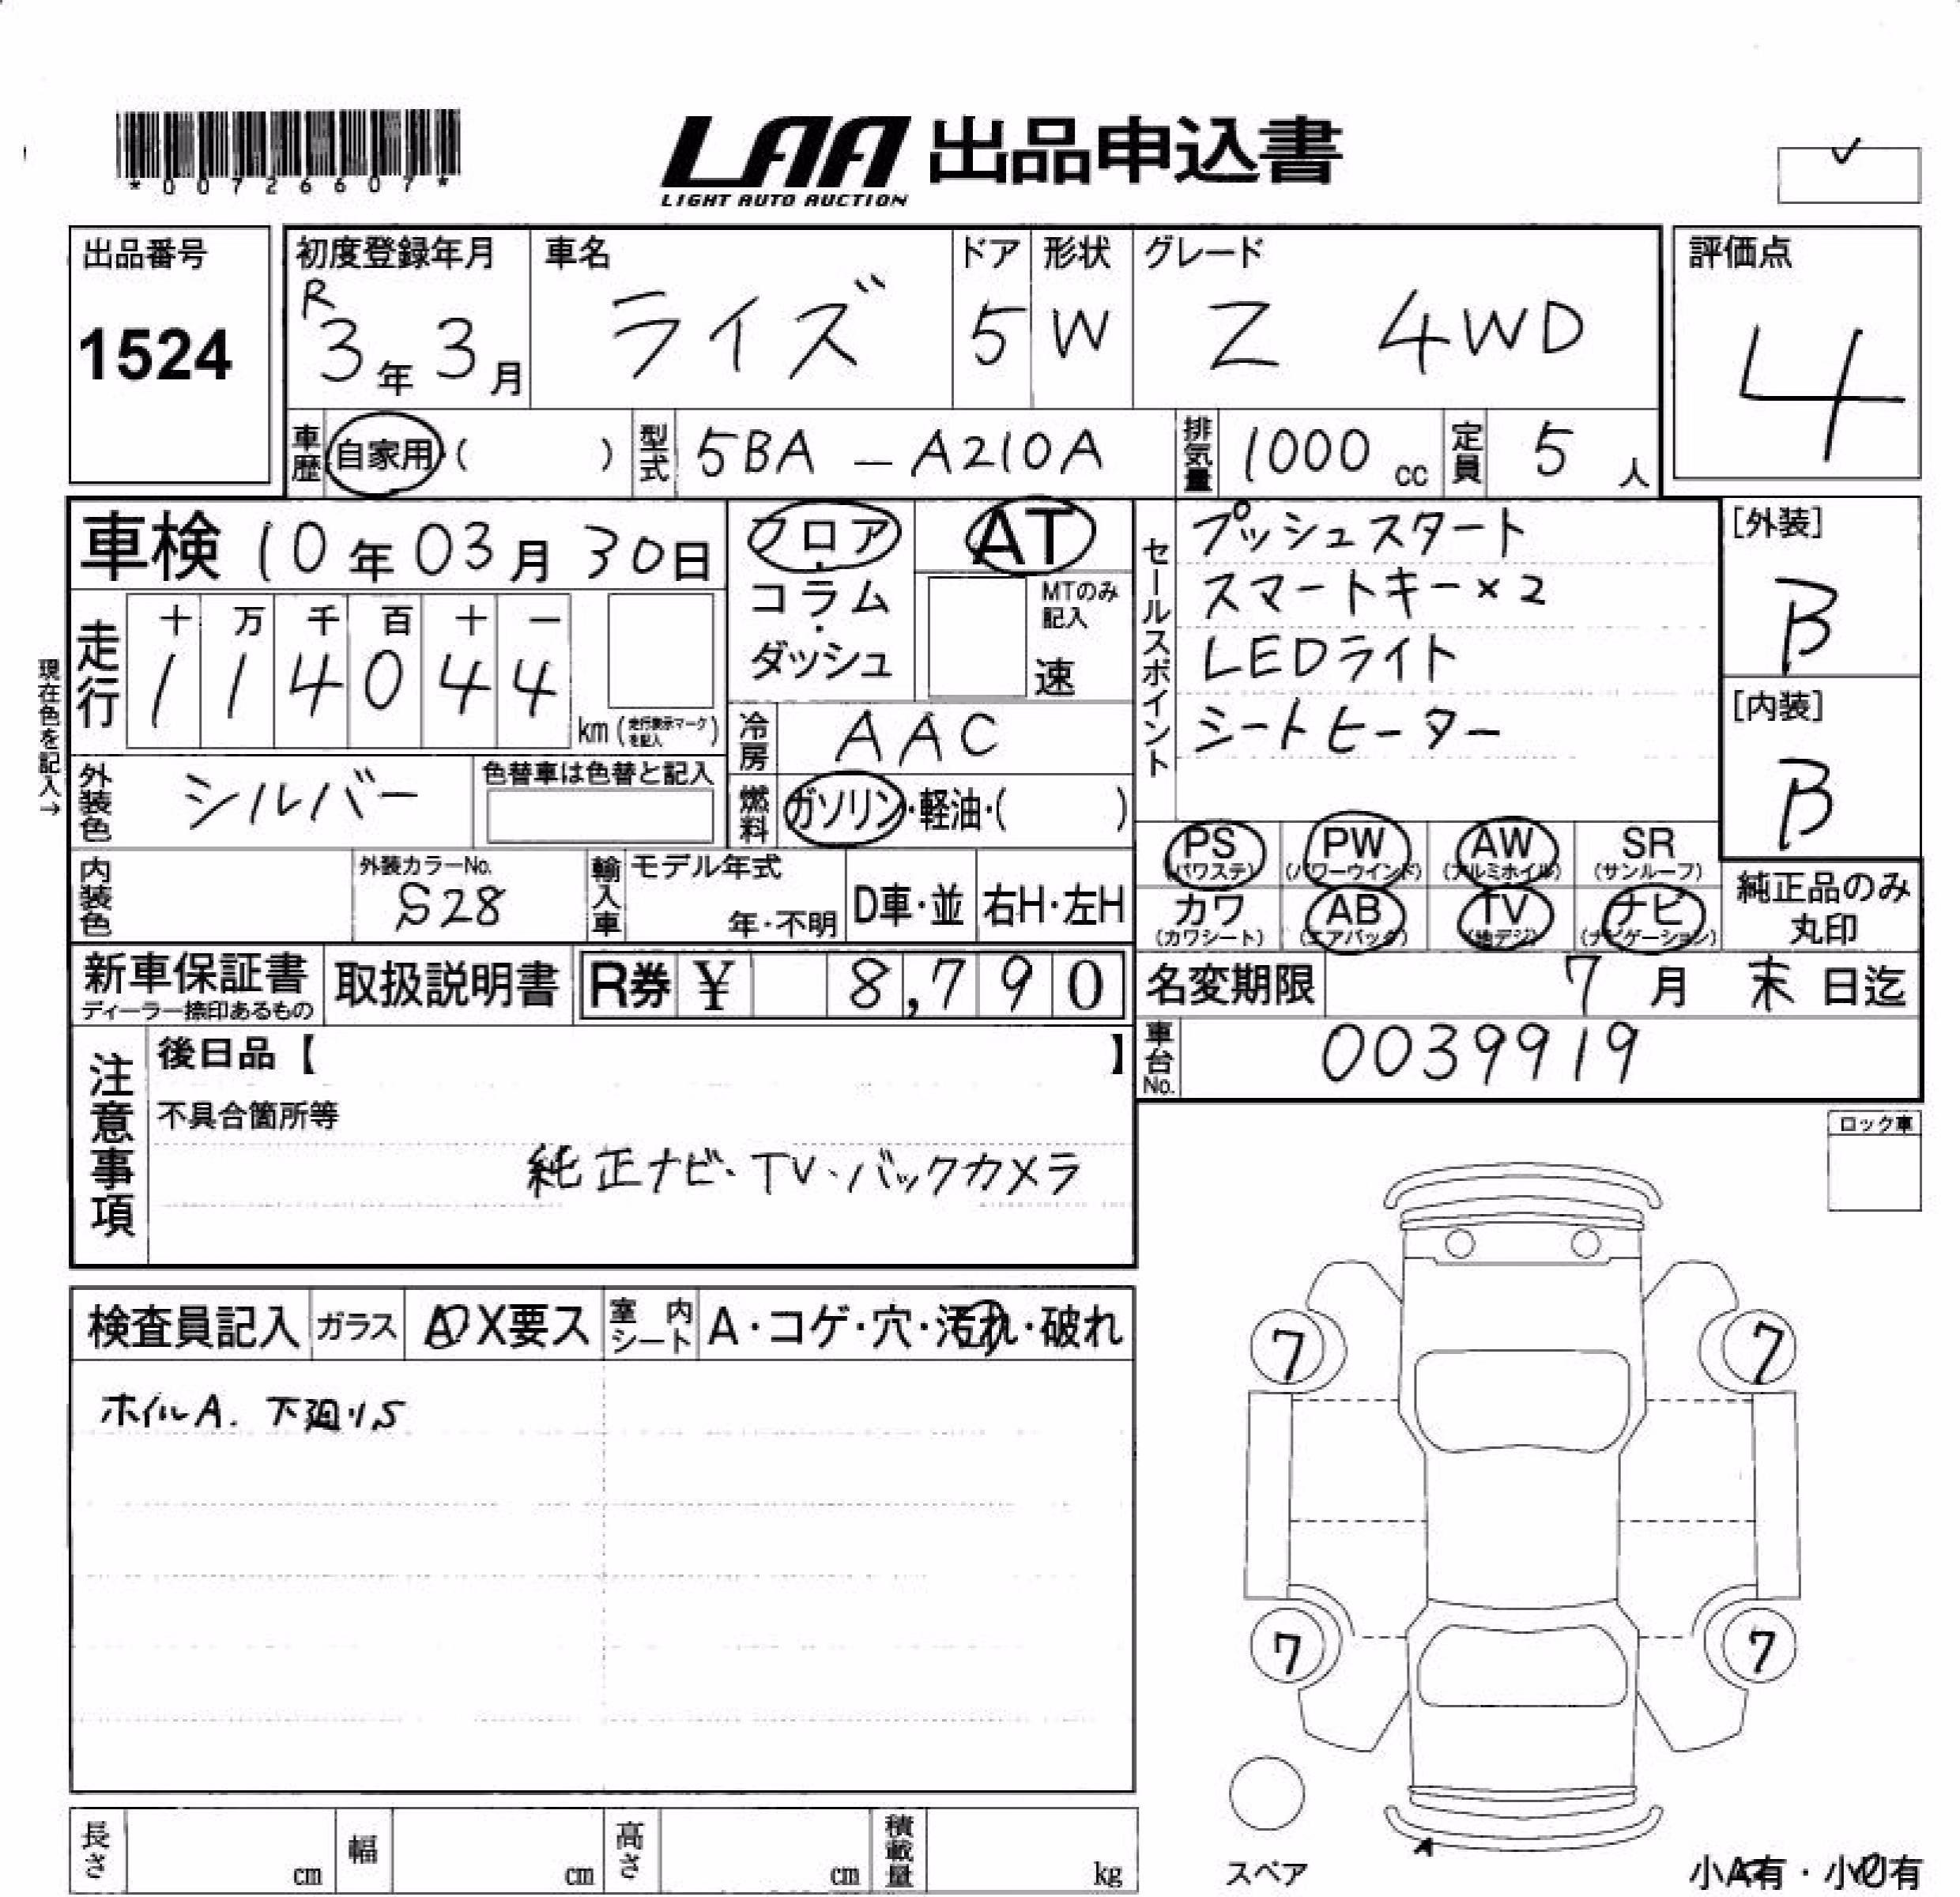 *00726607*
LAA 出品申込書
LIGHT AUTO AUCTION
出品番号
1524
初度登録年月
R 3年 3月
車名
ライズ
ドア
5
形状
W
グレード
Z 4WD
評価点
4
車歴 自家用・( )
型式 5BA - A210A
排気量 1000 cc
定員 5 人
車検 10年 03月 30日
フロア・コラム・ダッシュ
AT
MTのみ記入
速
セールスポイント
プッシュスタート
スマートキー×2
LEDライト
シートヒーター
[外装]
B
[内装]
B
現在色を記入→
走行
十 万 千 百 十 一
1 1 4 0 4 4
km (走行表示マークを記入)
冷房 AAC
外装色 シルバー
色替車は色替と記入
燃料 ガソリン・軽油・( )
PS (パワステ)
PW (パワーウインド)
AW (アルミホイル)
SR (サンルーフ)
カワ (カワシート)
AB (エアバック)
TV (地デジ)
ナビ (ナビゲーション)
純正品のみ丸印
内装色
外装カラーNo.
S28
輸入車
モデル年式
年・不明
D車・並
右H・左H
新車保証書
ディーラー捺印あるもの
取扱説明書
R券 ¥ 8,790
名変期限 7月 末日迄
車台No. 0039919
注意事項
後日品【 】
不具合箇所等
純正ナビ・TV・バックカメラ
ロック車
検査員記入
ガラス A・X要ス
室内シート A・コゲ・穴・汚れ・破れ
ホイルA. 下廻りS
7
7
7
7
A
スペア
小A有・小U有
長さ cm
幅 cm
高さ cm
積載量 kg